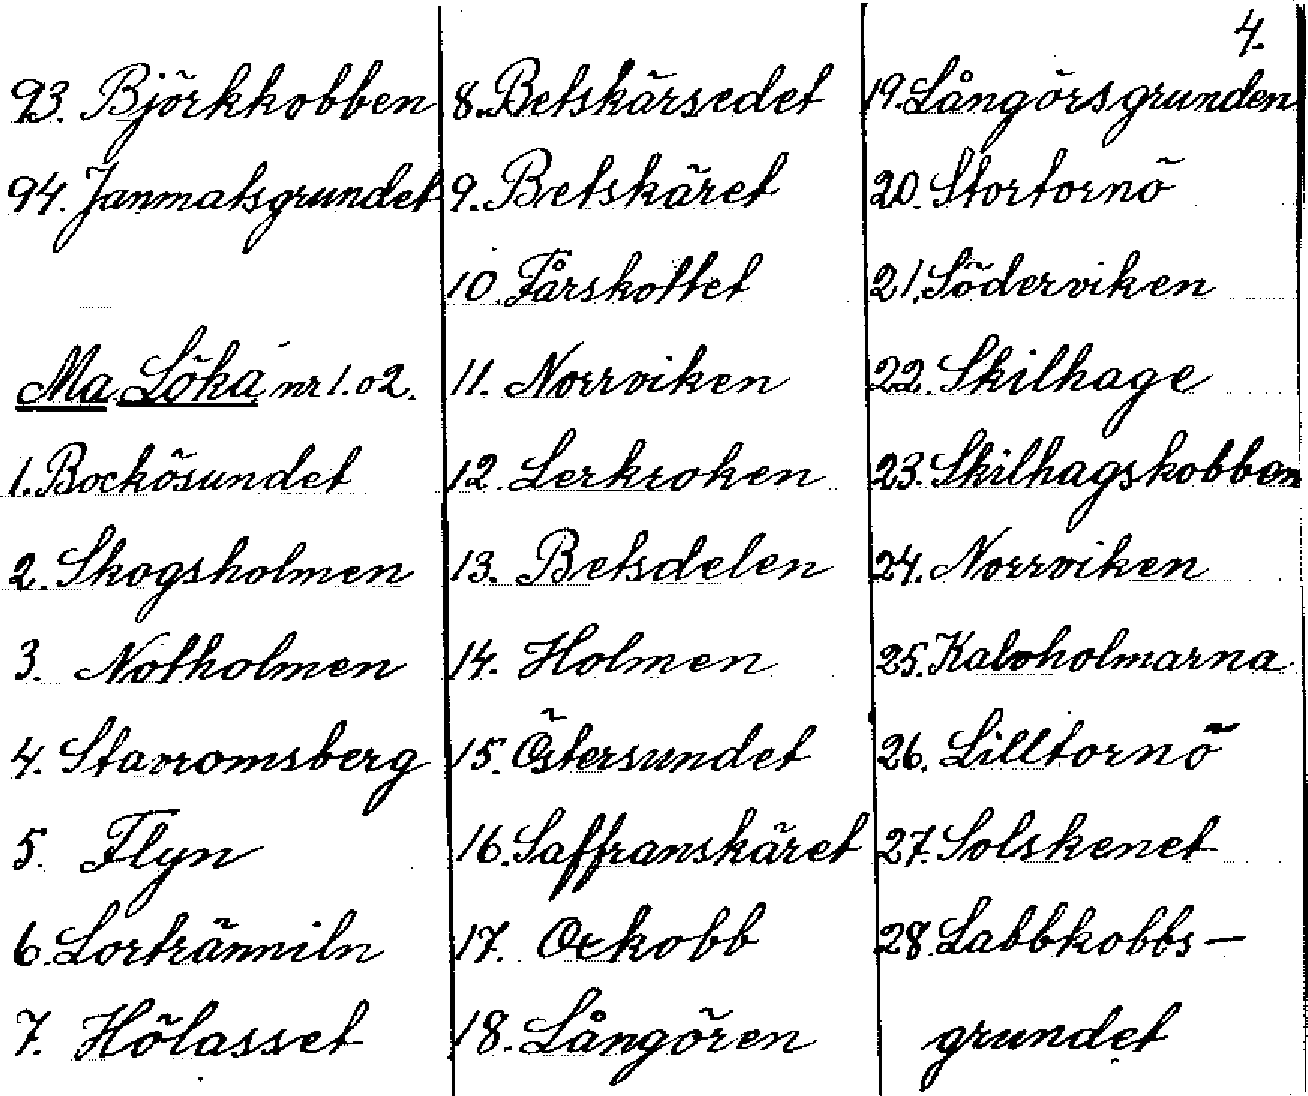 4.
93. Björkkobben
94. Janmatsgrundet
Ma Löka nr 1. o 2.
1. Bockösundet
2. Skogsholmen
3. Notholmen
4. Stavromsberg
5. Flyn
6. Lortränniln
7. Hölasset
8. Betskärsedet
9. Betskäret
10. Fårskottet
11. Norrviken
12. Lerkroken
13. Betsdelen
14. Holmen
15. Östersundet
16. Saffranskäret
17. Orkobb
18. Långören
19. Långörsgrunden
20. Stortornö
21. Söderviken
22. Skilhage
23. Skilhagskobben
24. Norrviken
25. Kalvholmarna
26. Lilltornö
27. Solskenet
28. Labbkobbs-
grundet